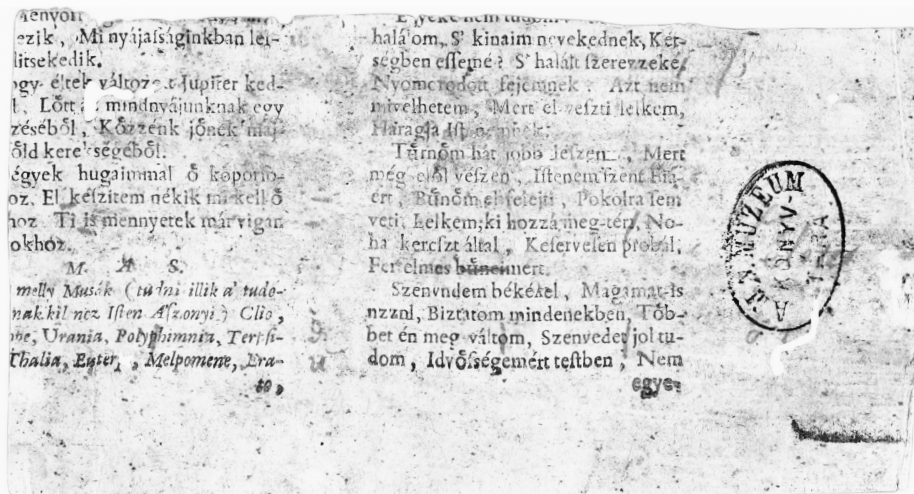 ezik, Mi nyájaſságinkban
litsekedik.
égy éltek Jupiter ked-
Lött mindnyájunknak egy
zéséből, Közzénk jőnek
őld kerekségéből.
égyek hugaimmal ő
oz. El készitem nékik mi kell ő
hoz. Ti is mennyetek már vigan
okhoz.
M. A S.
melly Musák (tudni illik a' tudo-
Iſten Aſzonyi.) Clio,
ne, Urania, Polyphimnia, Terſi-
Thalia, Euter, Melpomene, Era-
to,
halálom, S' kinaim nevekednek, Két-
ségben eſſemé? S' halált ſzerezzeké,
Nyomorodott fejemnek? Azt nem
mivelhetem, Mert el veszti lelkem,
Haragja
Tűrnöm hát jobb léſzen, Mert
még elöl véſzen, Iſtenem ſzent Fiá-
ért, Bűnöm el felejti, Pokolra ſem
veti, Lelkem ki hozzá meg-tér, No-
ha kereſzt által, Keſerveſen probál,
Fertelmes bűneimért.
Szenvndem békével, Magamat-is
nzznl, Biztatom mindenekben, Töb-
bet én meg váltóm, Szenvedet jol tu-
dom, Idvöſségemért teſtben, Nem
egye-
MUZEUM
KÖNYV-
TÁRA